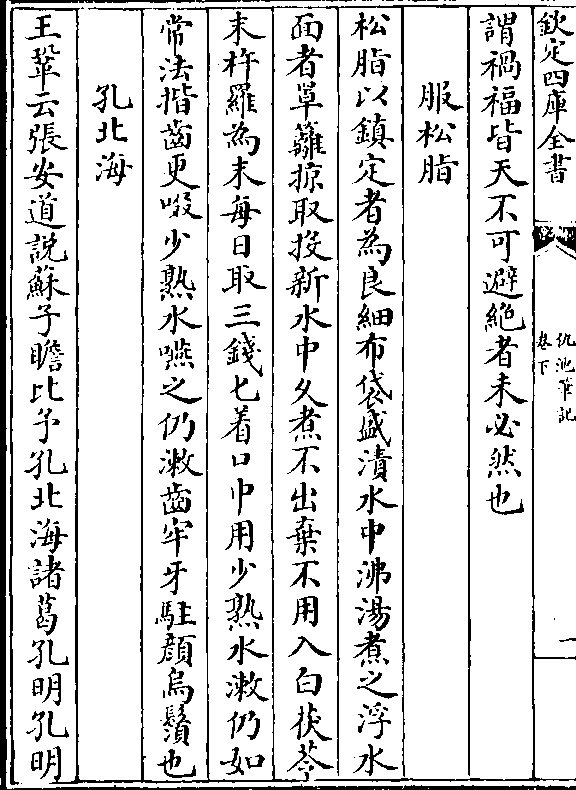 欽定四庫全書
仇池筆記
卷下
一
謂禍福皆天不可避絶者未必然也
服松脂
松脂以鎮定者為良細布袋盛漬水中沸湯煮之浮水
面者草籬掠取投新水中久煮不出棄不用入白茯苓
末杵羅為末每日取三錢匕着口中用少熟水漱仍如
常法揩齒更啜少熟水嚥之仍漱齒牢牙駐顔烏鬚也
孔北海
王鞏云張安道説蘇子瞻比予孔北海諸葛孔明孔明